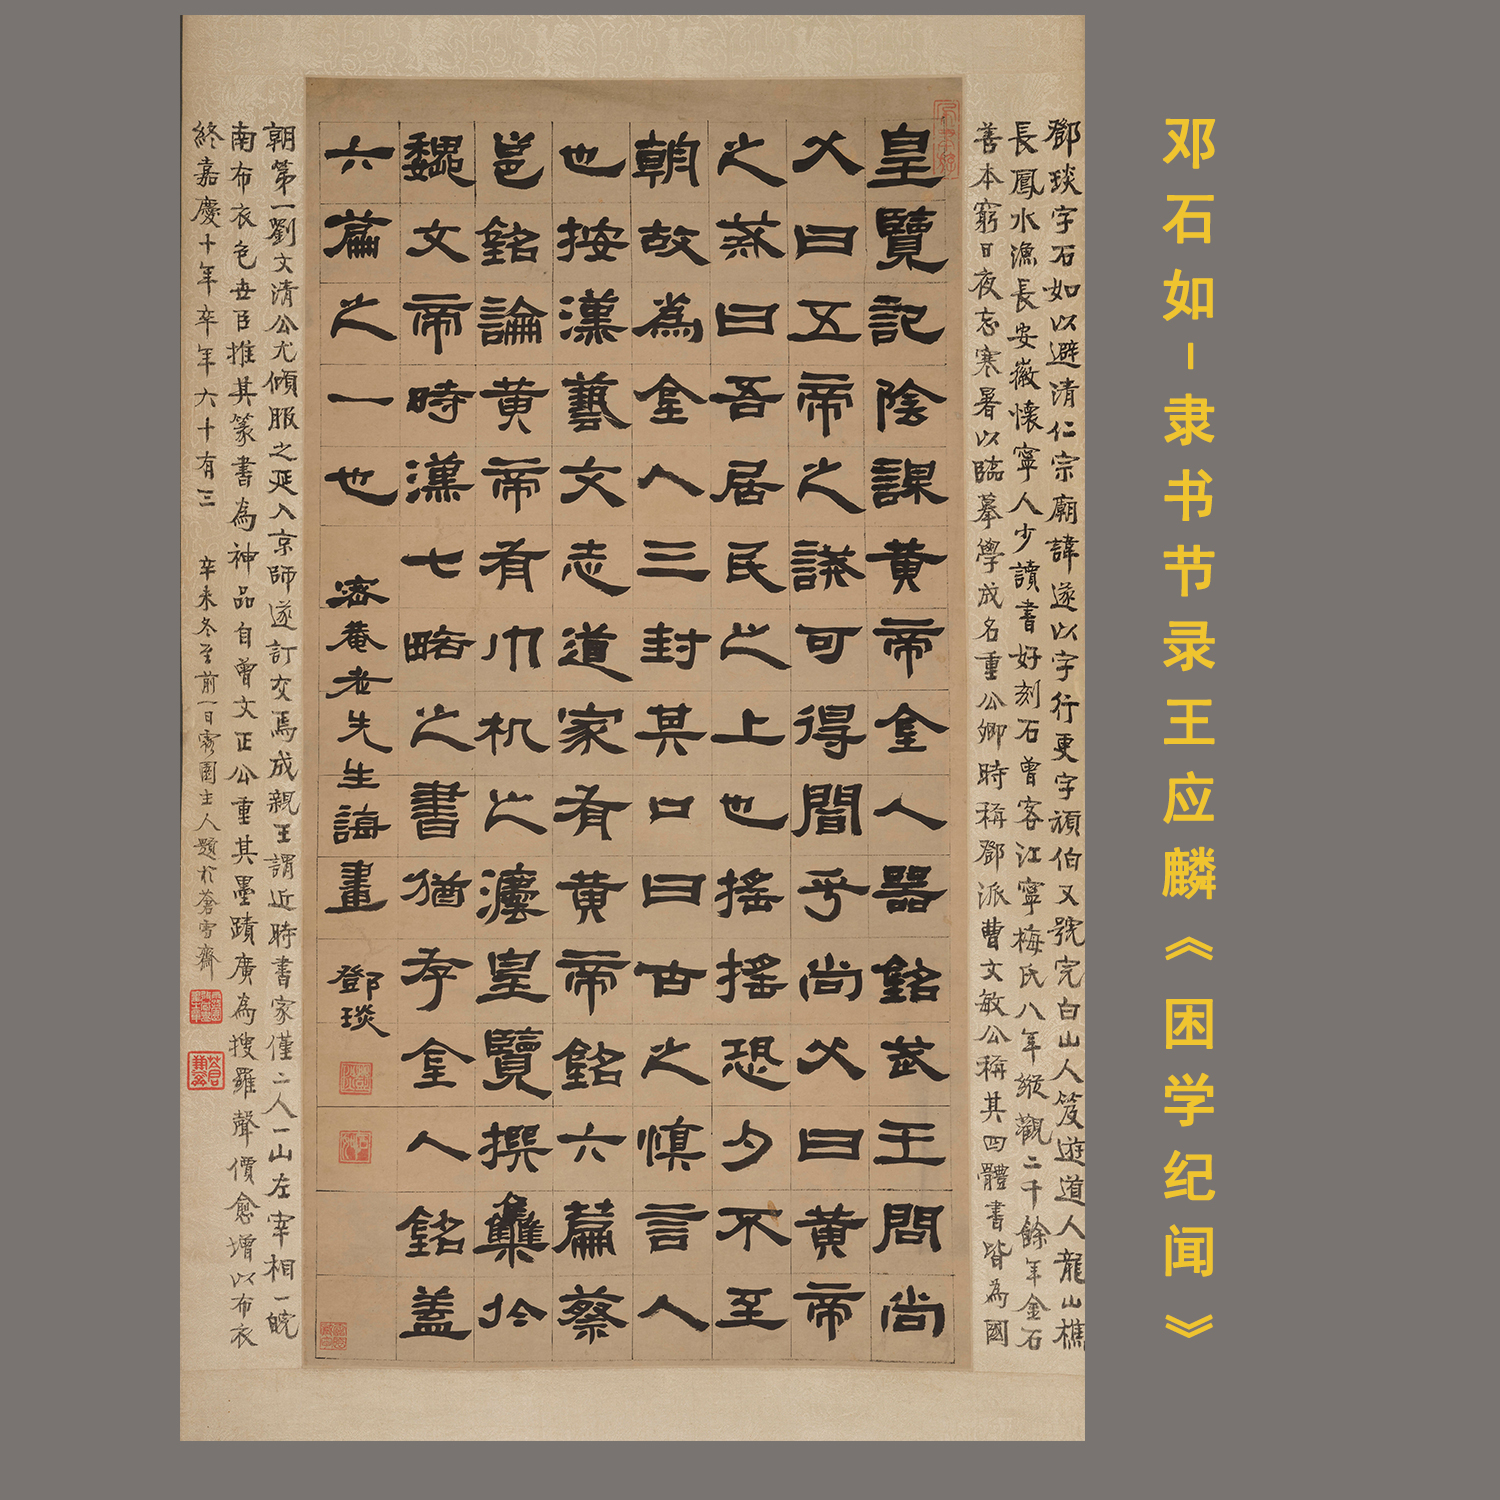 邓石如-隶书节录王应麟《困学纪闻》
鄧琰字石如以避清仁宗廟諱遂以字行更字頑伯又號完白山人笈遊道人龍山樵
長鳳水漁長安徽懷寧人少讀書好刻石曾客江寧梅氏八年縱觀二千餘年金石
善本窮日夜忘寒暑以臨摹學成名重公卿時稱鄧派曹文敏公稱其四體書皆為國
皇覽記陰謀黄帝金人器銘武王問尚
父曰五帝之誡可得聞乎尚父曰黄帝
之戒曰吾居民之上也摇摇恐夕不至
朝故為金人三封其口曰古之慎言人
也按漢藝文志道家有黄帝銘六篇蔡
邕銘論黄帝有巾机之法皇覽撰集於
魏文帝時漢七略之書猶存金人銘蓋
六篇之一也 密菴老先生誨畫 鄧琰
朝第一劉文清公尤傾服之延入京師遂訂交焉成親王謂近時書家僅二人一山左宰相一皖
南布衣包世臣推其篆書為神品自曾文正公重其墨蹟廣為搜羅聲價愈增以布衣
終嘉慶十年卒年六十有三 辛未冬至前一日園主人題於蒼雪齋